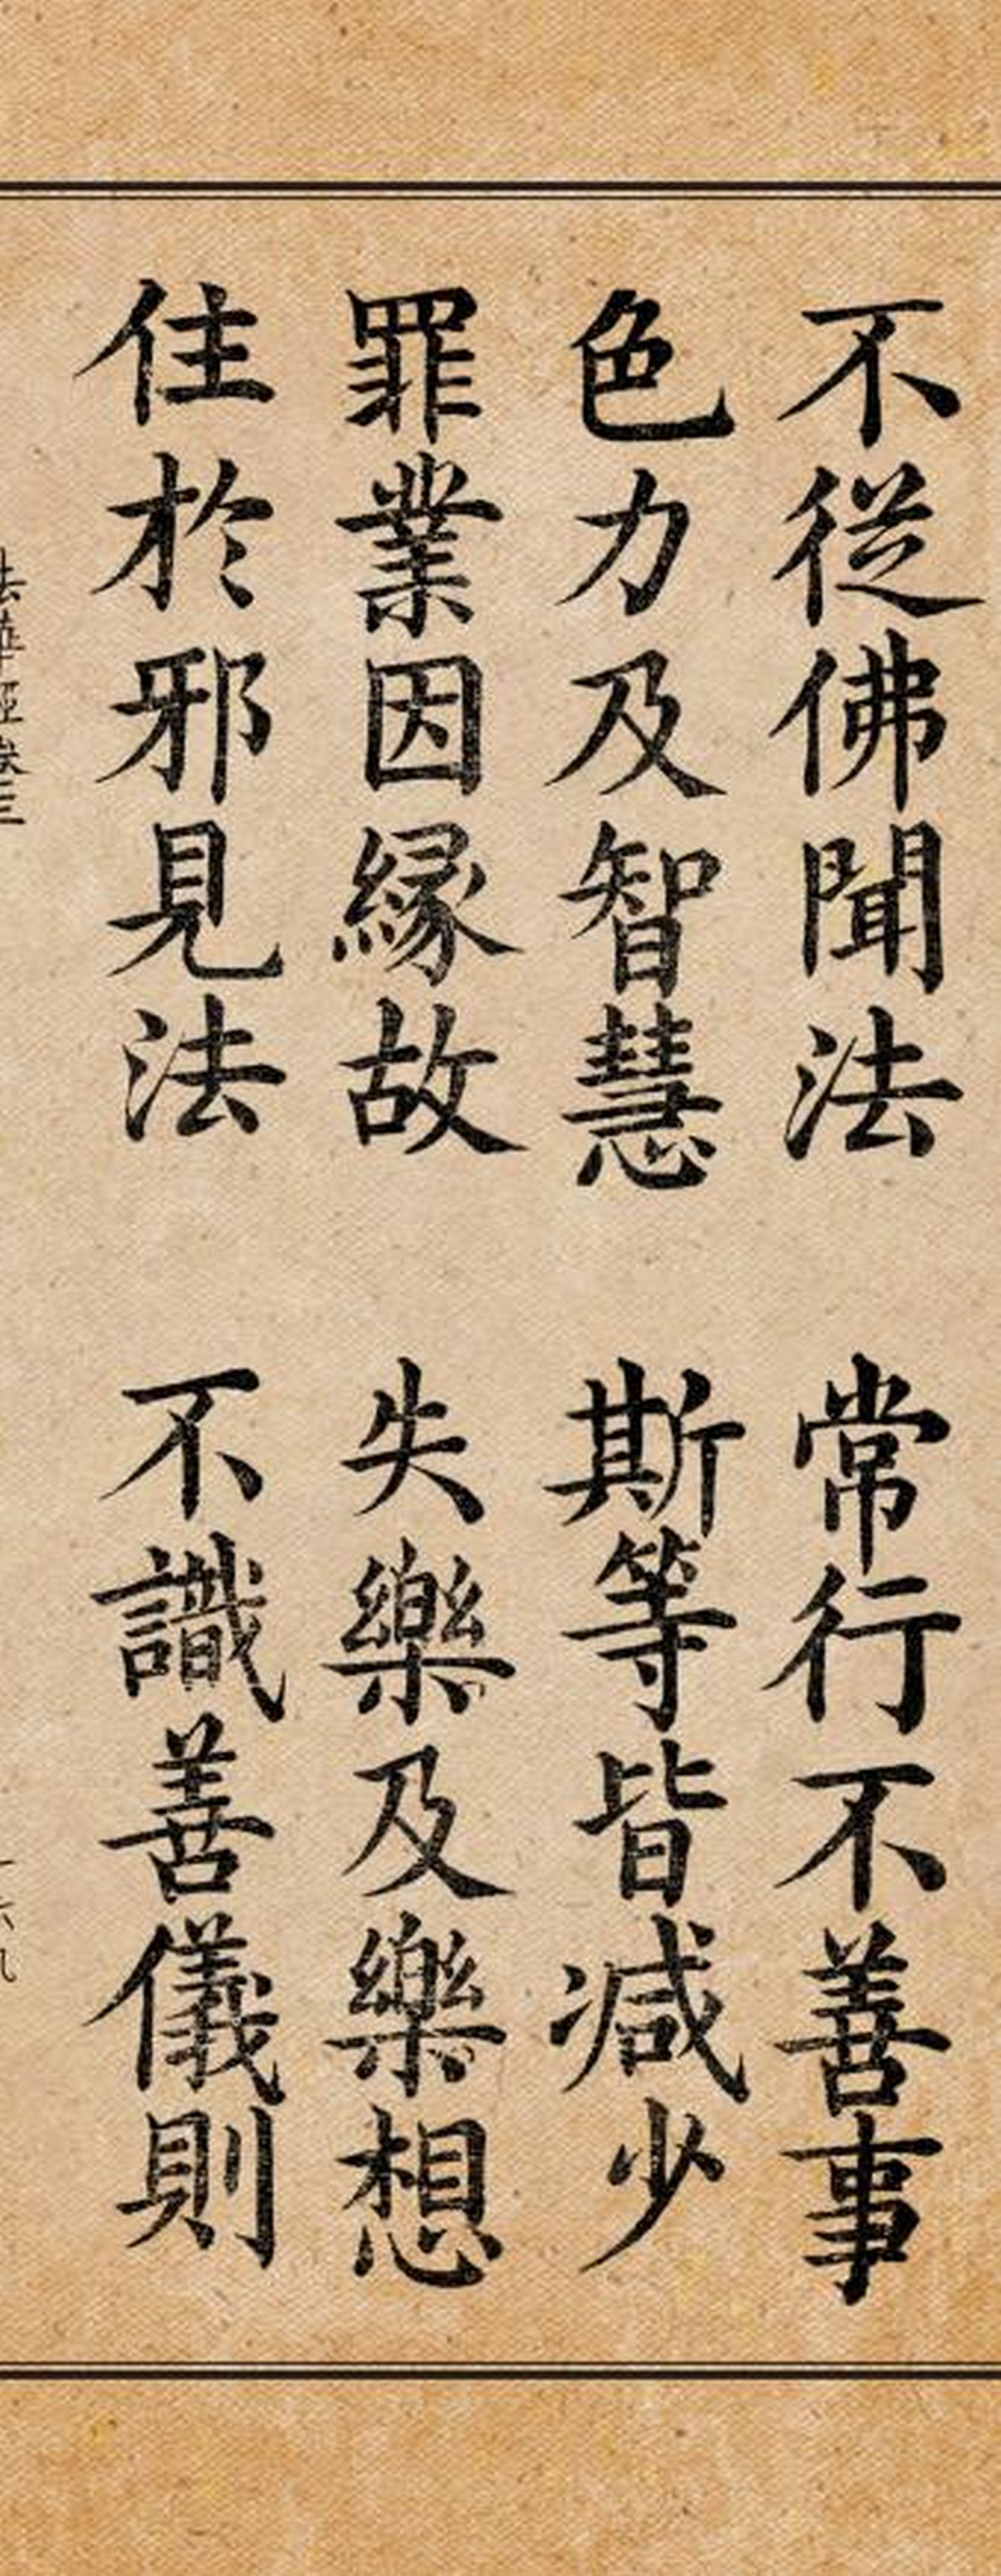 不從佛聞法 常行不善事
色力及智慧 斯等皆減少
罪業因緣故 失樂及樂想
住於邪見法 不識善儀則
法華經卷三